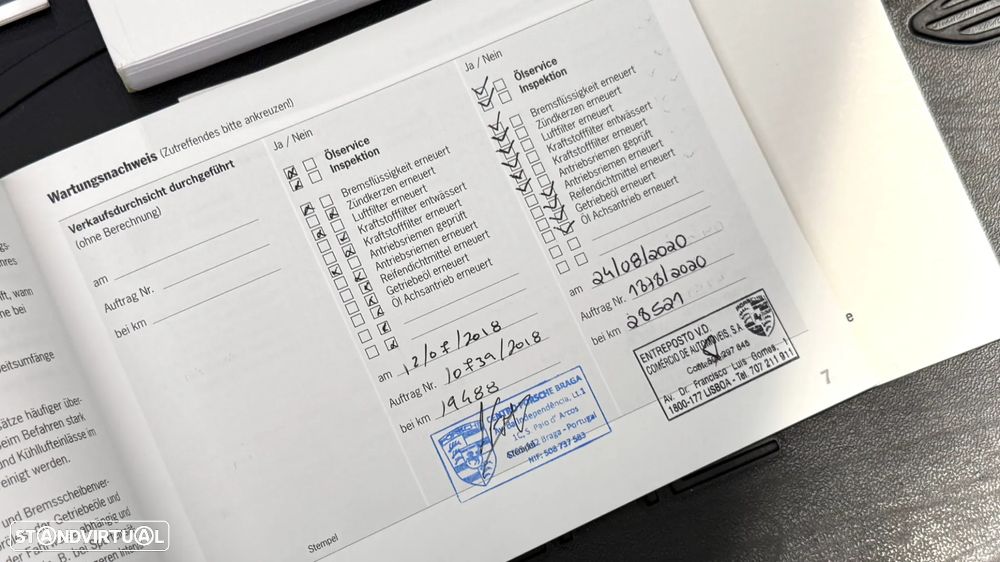 Wartungsnachweis (Zutreffendes bitte ankreuzen!)
Verkaufsdurchsicht durchgeführt
(ohne Berechnung)
am
Auftrag Nr.
bei km
Ja / Nein
Ölservice
Inspektion
Bremsflüssigkeit erneuert
Zündkerzen erneuert
Luftfilter erneuert
Kraftstofffilter entwässert
Kraftstofffilter erneuert
Antriebsriemen geprüft
Antriebsriemen erneuert
Reifendichtmittel erneuert
Getriebeöl erneuert
Öl Achsantrieb erneuert
am 12/07/2018
Auftrag Nr. 10739/2018
bei km 19488
CENTRO PORSCHE BRAGA
Av. da Independência, Lt.1
1C, S. Paio d' Arcos
Braga - Portugal
NIF: 508 737 583
Stempel
Ja / Nein
Ölservice
Inspektion
Bremsflüssigkeit erneuert
Zündkerzen erneuert
Luftfilter erneuert
Kraftstofffilter entwässert
Kraftstofffilter erneuert
Antriebsriemen geprüft
Antriebsriemen erneuert
Reifendichtmittel erneuert
Getriebeöl erneuert
Öl Achsantrieb erneuert
am 24/08/2020
Auftrag Nr. 1378/2020
bei km 28521
ENTREPOSTO V.D.
COMÉRCIO DE AUTOMÓVEIS, S.A
Av. Dr. Francisco Luis Gomes, 1
1800-177 LISBOA - Tel. 707 211 911
7
e
Stempel
eitsumfänge
ätze häufiger über-
eim Befahren stark
und Kühllufteinlässe im
ereinigt werden.
und Bremsscheibenver-
der Getriebeöle und
STANDVIRTUAL